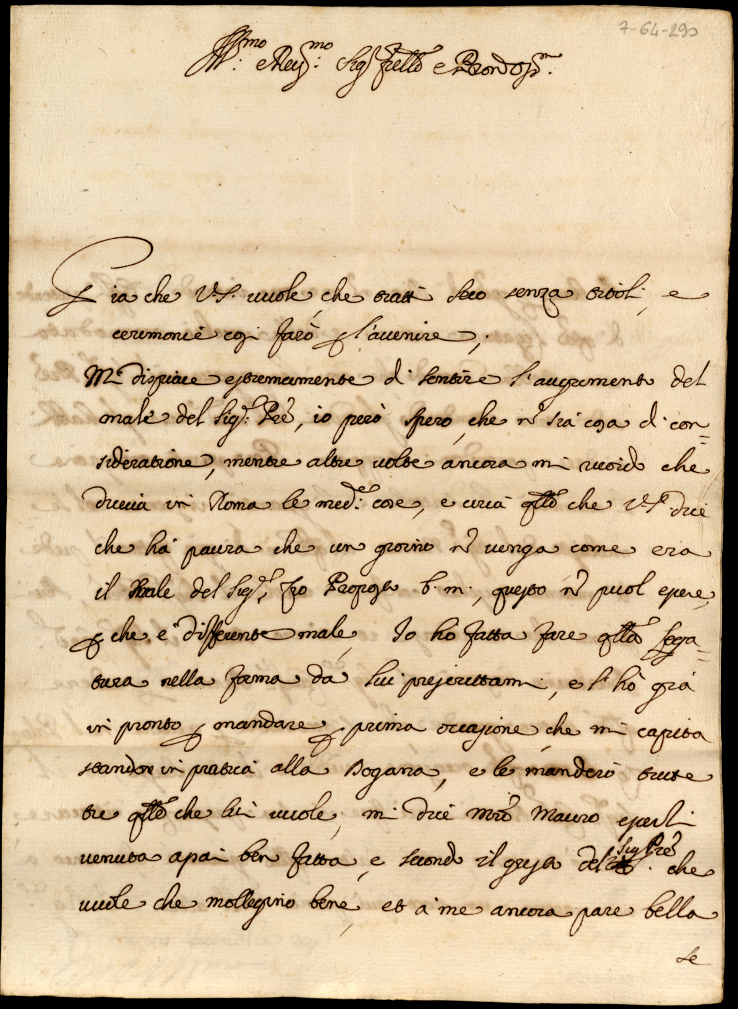 7-64-290
Ill.mo e Rev.mo Sig.r Fr̃ello e Pron Oss.mo
Gia che V.S. vuole, che tratti seco senza titoli, e
ceremonie cosi farò p l'avenire;
Mi dispiace estremamente di sentire l'augumento del
male del Sig.r Prẽ, io però spero, che nõ sia cosa di con=
sideratione, mentre altre volte ancora mi ricordo che
diceva in Roma le med.e cose, e circa qllo che V.S. dice
che hà paura che un giorno nõ venga come era
il Male del Sig.r Zio Proposto b.m., questo nõ puol essere,
p che è differente male, Io ho fatta fare qlla sega=
tura nella forma da lui prescrittami, e l'hò già
in pronto p mandare p prima occasione, che mi capita
stando in pratica alla Dogana, e le manderò tutte
tre qllo che lui vuole, mi dice Mro Mauro esserli
venuta assai ben fatta, e secondo il gusto del Sig.r Prẽ che
vuole che molleggino bene, et à me ancora pare bella
se